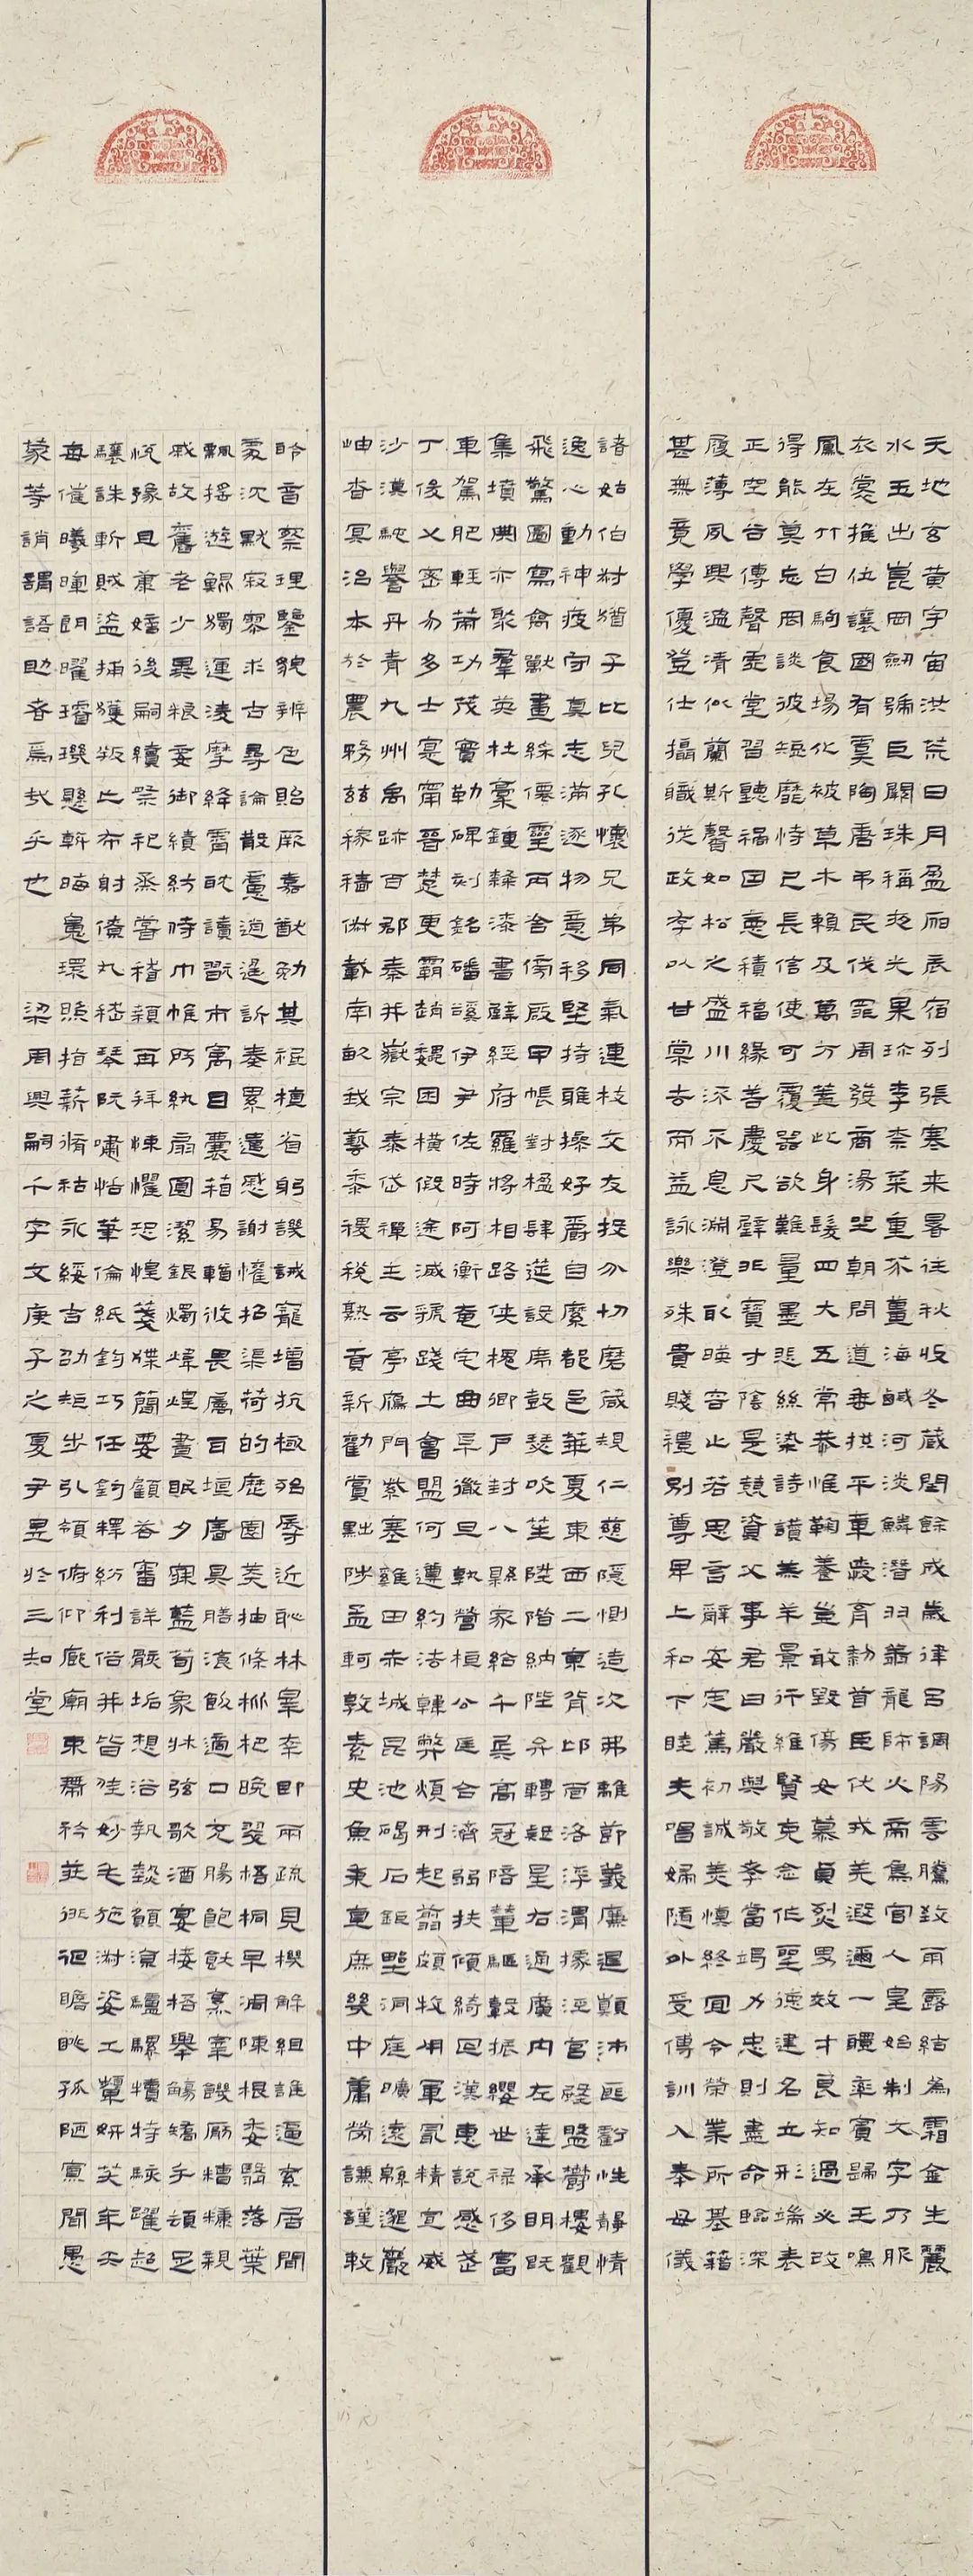 天地玄黃宇宙洪荒日月盈昃辰宿列張寒来暑往秋收冬藏閏餘成歲律呂調陽雲騰致雨露結為霜金生麗
水玉出崑岡劍號巨闕珠稱夜光果珍李柰菜重芥薑海鹹河淡鱗潛羽翔龍師火帝鳥官人皇始制文字乃服
衣裳推位讓國有虞陶唐弔民伐罪周發商湯坐朝問道垂拱平章愛育黎首臣伏戎羌遐邇一體率賓歸王鳴
鳳在竹白駒食場化被草木賴及萬方蓋此身髮四大五常恭惟鞠養豈敢毀傷女慕貞烈男效才良知過必改
得能莫忘罔談彼短靡恃己長信使可覆器欲難量墨悲絲染詩讚羔羊景行維賢克念作聖德建名立形端表
正空谷傳聲虛堂習聽禍因惡積福緣善慶尺璧非寶寸陰是競資父事君曰嚴與敬孝當竭力忠則盡命臨深
履薄夙興溫清似蘭斯馨如松之盛川流不息淵澄取暎容止若思言辭安定篤初誠美慎終宜令榮業所基藉
甚無竟學優登仕攝職從政存以甘棠去而益詠樂殊貴賤禮別尊卑上和下睦夫唱婦隨外受傅訓入奉母儀
諸姑伯叔猶子比兒孔懷兄弟同氣連枝交友投分切磨箴規仁慈隱惻造次弗離節義廉退顛沛匪虧性靜情
逸心動神疲守真志滿逐物意移堅持雅操好爵自縻都邑華夏東西二京背邙面洛浮渭據涇宮殿盤鬱樓觀
飛驚圖寫禽獸畫綵僊靈丙舍傍啟甲帳對楹肆筵設席鼓瑟吹笙陞階納陛弁轉疑星右通廣內左達承明既
集墳典亦聚羣英杜稾鍾隸漆書壁經府羅將相路俠槐卿戶封八縣家給千兵高冠陪輦驅轂振纓世祿侈富
車駕肥輕策功茂實勒碑刻銘磻谿伊尹佐時阿衡奄宅曲阜微旦孰營桓公匡合濟弱扶傾綺回漢惠說感武
丁俊乂密勿多士寔甯晉楚更霸趙魏困橫假途滅虢踐土會盟何遵約法韓弊煩刑起翦頗牧用軍最精宣威
沙漠馳譽丹青九州禹跡百郡秦并嶽宗泰岱禪主云亭雁門紫塞雞田赤城昆池碣石鉅野洞庭曠遠緜邈巖
岫杳冥治本於農務茲稼穡俶載南畝我藝黍稷稅熟貢新勸賞黜陟孟軻敦素史魚秉直庶幾中庸勞謙謹敕
聆音察理鑒貌辨色貽厥嘉猷勉其祗植省躬譏誡寵增抗極殆辱近恥林皋幸即兩疏見機解組誰逼索居閒
處沉默寂寥求古尋論散慮逍遙訴奏累遣慼謝懽招渠荷的歷園莽抽條枇杷晚翠梧桐早凋陳根委翳落葉
飄搖遊鯤獨運凌摩絳霄耽讀翫市寓目囊箱易輶攸畏屬耳垣牆具膳飡飯適口充腸飽飫烹宰饑厭糟糠親
戚故舊老少異糧妾御績紡侍巾帷房紈扇圓潔銀燭煒煌晝眠夕寐藍筍象牀弦歌酒宴接杯舉觴矯手頓足
悅豫且康嫡後嗣續祭祀烝嘗稽顙再拜悚懼恐惶箋牒簡要顧答審詳骸垢想浴執熱願涼驢騾犢特駭躍超
驤誅斬賊盜捕獲叛亡布射僚丸嵇琴阮嘯恬筆倫紙鈞巧任釣釋紛利俗並皆佳妙毛施淑姿工顰妍笑年矢
每催曦暉朗曜璿璣懸斡晦魄環照指薪脩祜永綏吉劭矩步引領俯仰廊廟束帶矜莊徘徊瞻眺孤陋寡聞愚
蒙等誚謂語助者焉哉乎也 梁周興嗣千字文庚子之夏尹昱於三知堂